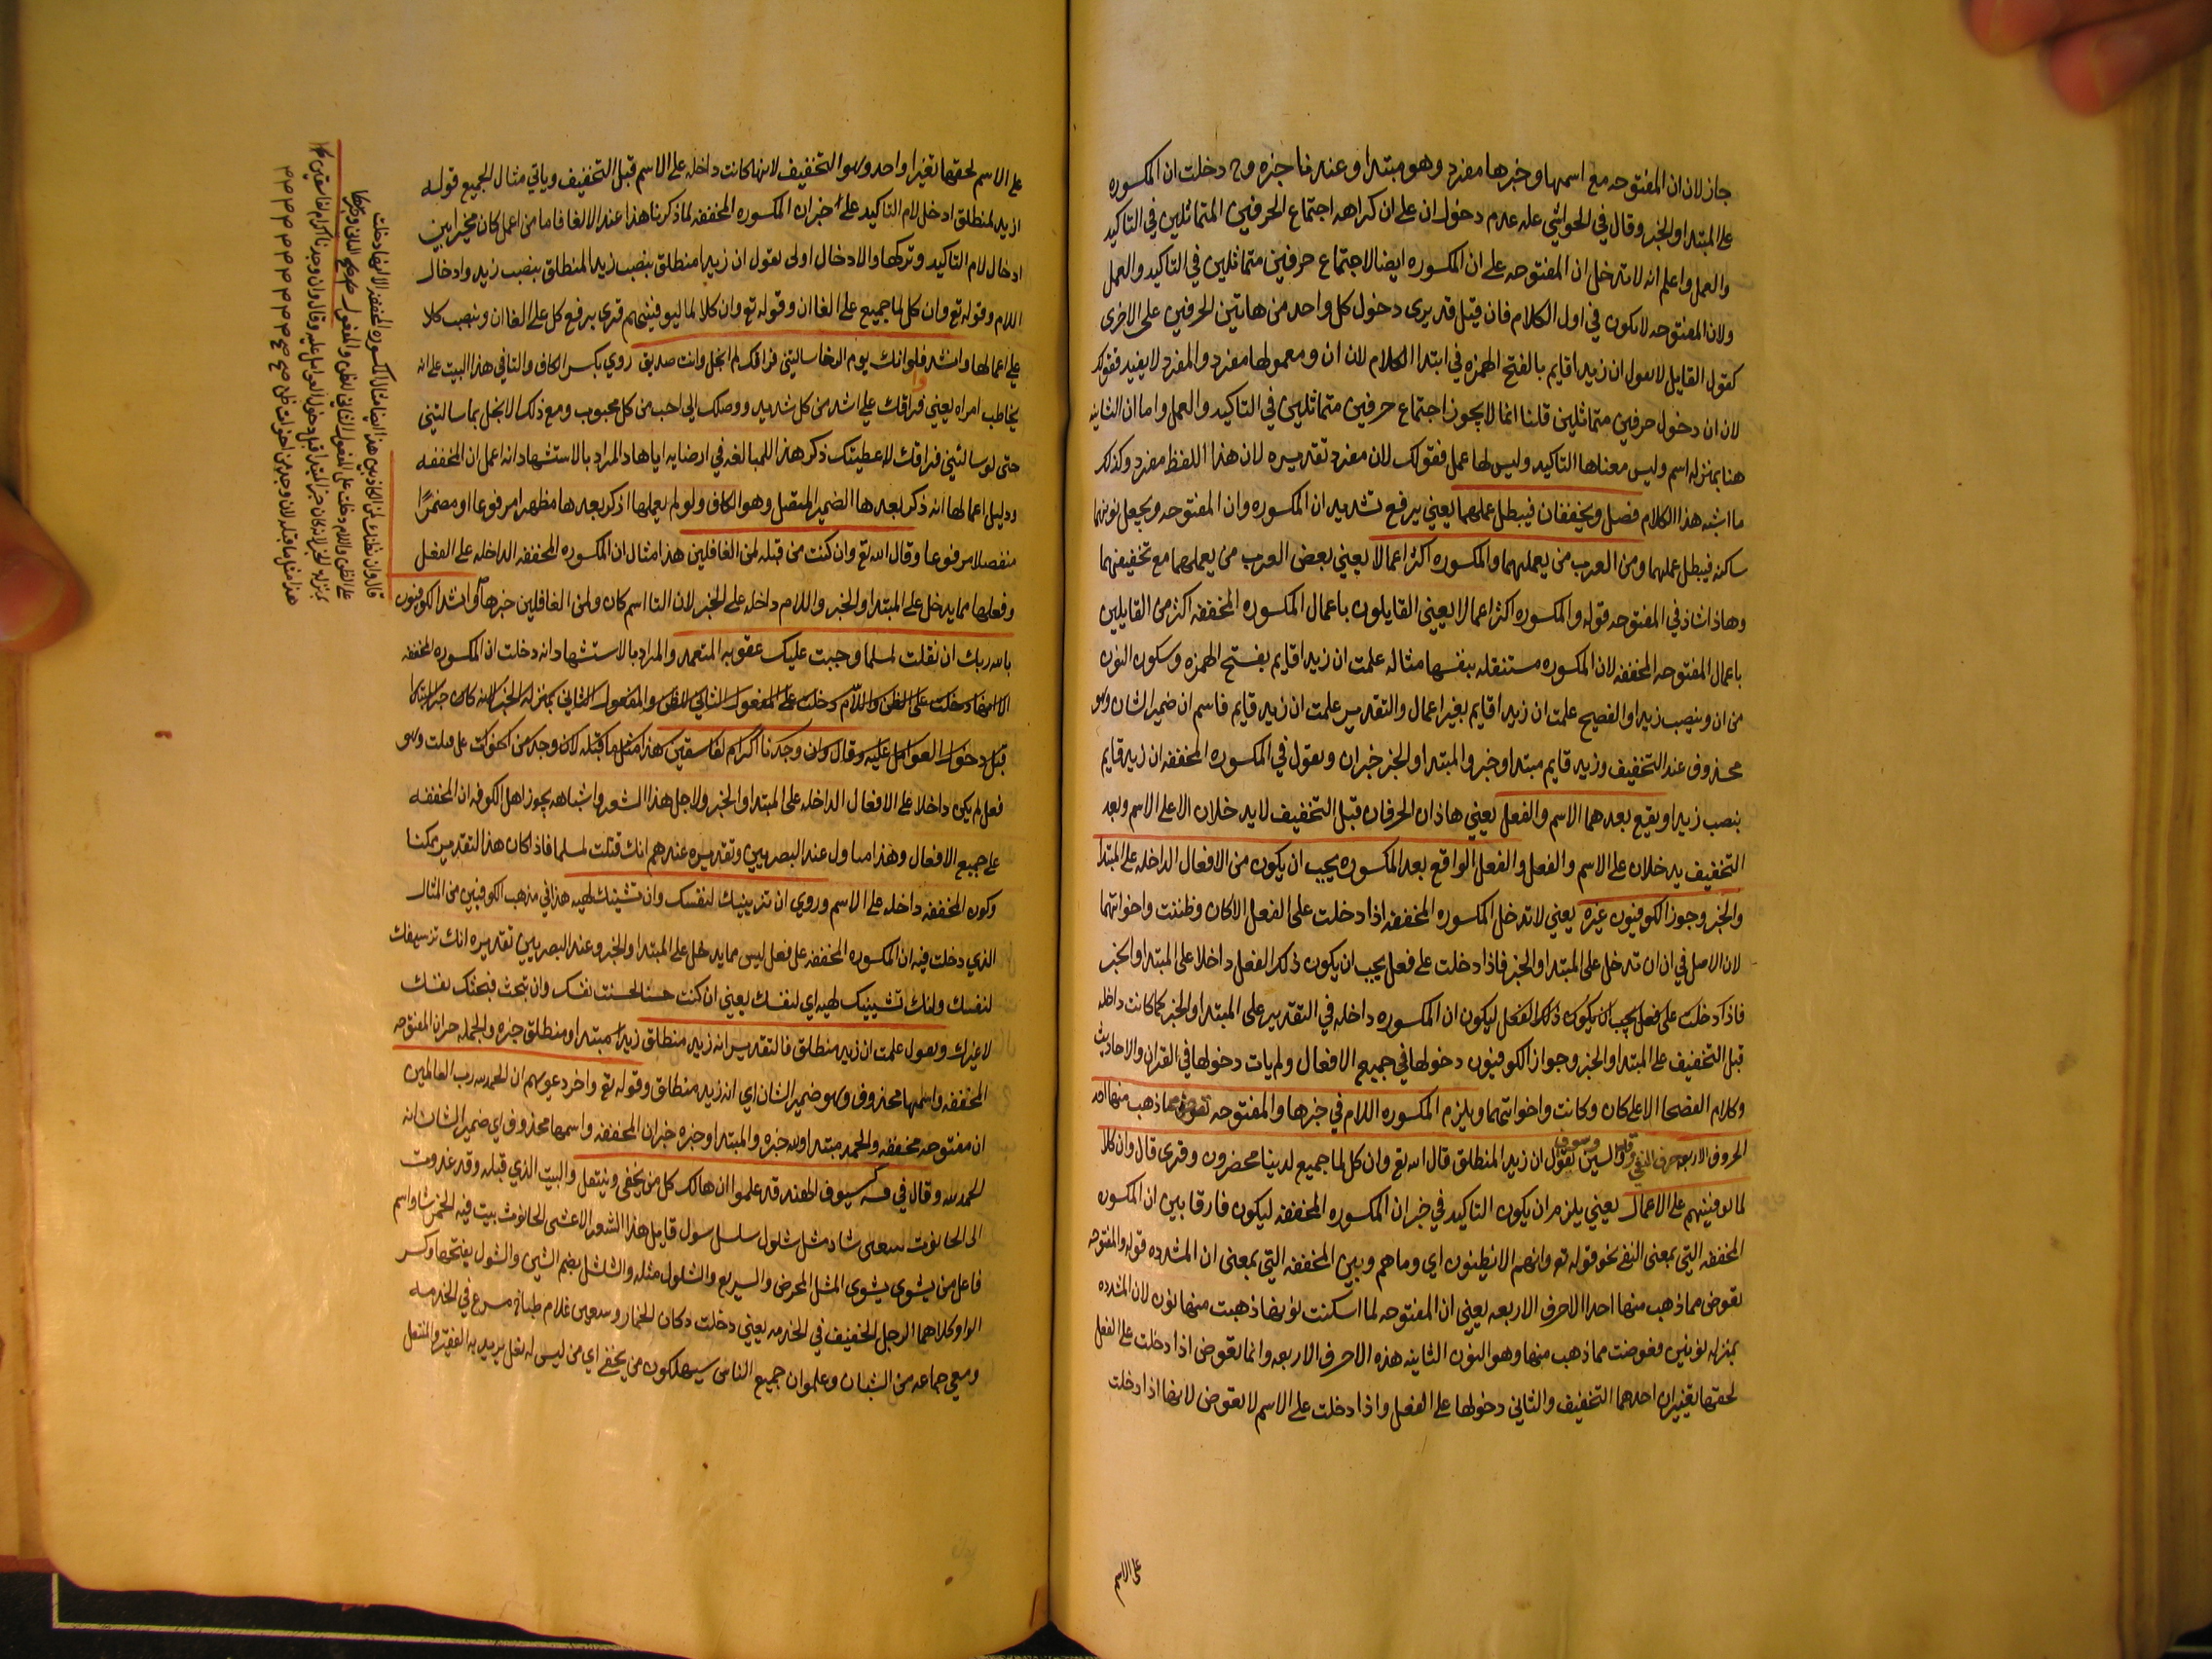 جاز لان ان المفتوحه مع اسمها وخبرها مفرد وهو مبتدا وعندنا خبره وح دخلت ان المكسوره
على المبتدا والخبر وقال في الحواشي عله عدم دخول ان على ان كراهه اجتماع الحرفين المتماثلين في التاكيد
والعمل واعلم انه لا تدخل ان المفتوحه على ان المكسوره ايضا لاجتماع حرفين متماثلين في التاكيد والعمل
ولان المفتوحه لا تكون في اول الكلام فان قيل قد يرى دخول كل واحد من هاتين الحرفين على الاخرى
كقول القايل لا تقول ان زيدا قايم بالفتح الهمزه في ابتدا الكلام لان ان ومعمولها مفرد والمفرد لا يفيد فقولك
لان ان دخول حرفين متماثلين قلنا انما لا يجوز اجتماع حرفين متماثلين في التاكيد والعمل واما ان الثانيه
هنا بمنزله اسم وليس معناها التاكيد وليس لها عمل فقولك لان مفرد تقديره لان هذا اللفظ مفرد وكذلك
ما اشبه هذا الكلام فصل ويخففان فيبطل عملهما يعني يرفع تشديد ان المكسوره وان المفتوحه ويجعل نونهما
ساكنه فيبطل عملهما ومن العرب من يعملهما والمكسوره اكثر اعمالا يعني بعض العرب من يعملهما مع تخفيفهما
وهاذا شاذ في المفتوحه قوله والمكسوره اكثر اعمالا يعني القايلون باعمال المكسوره المخففه اكثر من القايلين
باعمال المفتوحه المخففه لان المكسوره مستنقله بنفسها مثاله علمت ان زيدا قايم بفتح الهمزه وسكون النون
من ان وينصب زيدا والفصيح علمت ان زيدا قايم بغير اعمال والتقدير علمت ان زيد قايم فاسم ان ضمير الشان وهو
محذوف عند التخفيف وزيد قايم مبتدا وخبر والمبتدا والخبر خبران وتقول في المكسوره المخففه ان زيد قايم
بنصب زيدا ويقع بعدهما الاسم والفعل يعني هاذان الحرفان قبل التخفيف لا يدخلان الا على الاسم وبعد
التخفيف يدخلان على الاسم والفعل والفعل الواقع بعد المكسوره يجب ان يكون من الافعال الداخله على المبتدا
والخبر وجوز الكوفيون غيره يعني لا تدخل المكسوره المخففه اذا دخلت على الفعل الا كان وظننت واخواتهما
لان الاصل في ان ان تدخل على المبتدا والخبر فاذا دخلت على فعل يجب ان يكون ذلك الفعل داخلا على المبتدا والخبر
فاذا دخلت على فعل يجب ان يكون ذلك الفعل ليكون ان المكسوره داخله في التقدير على المبتدا والخبر كما كانت داخله
قبل التخفيف على المبتدا والخبر وجواز الكوفيون دخولها في جميع الافعال ولم يات دخولها في القران والاحاديث
وكلام الفصحا الا على كان وكانت واخواتهما ويلزم المكسوره اللام في خبرها والمفتوحه تعوض مما ذهب منها احد
الحروف الاربعه حرف النفي وقد والسين وسوف تقول ان زيد المنطلق قال الله تع وان كل لما جميع لدينا محضرون وقرى قال وان كلا
لما ليوفينهم على الاعمال يعني يلزم ان يكون التاكيد في خبر ان المكسوره المخففه ليكون فارقا بين ان المكسوره
المخففه التي بمعنى النفي نحو قوله تع وان هم الا يظنون اي وما هم وبين المخففه التي بمعنى ان المشدده قوله والمفتوحه
تعوض مما ذهب منها احدا الاحرف الاربعه يعني ان المفتوحه لما اسكنت نونها ذهبت منها نون لان المشدده
بمنزله نونين فعوضت مما ذهب منها وهو النون الثانيه هذه الاحرف الاربعه وانما تعوض اذا دخلت على الفعل
لحقها تغييران احدهما التخفيف والثاني دخولها على الفعل واذا دخلت على الاسم لا تعوض لانها اذا دخلت
على الاسم
على الاسم لحقها تغيرا واحد وهو التخفيف لانها كانت داخله على الاسم قبل التخفيف وياتي مثال الجميع قوله
ان زيد لمنطلق ادخل لام التاكيد على خبر ان المكسوره المخففه لما ذكرنا هذا عند الالغا فاما من اعمل كان مخيرا بين
ادخال لام التاكيد وتركها والادخال اولى تقول ان زيدا منطلق بنصب زيد المنطلق بنصب زيد وادخال
اللام وقوله تع وان كل لما جميع على الغا ان وقوله تع وان كلا لما ليوفينهم قرى برفع كل على الغا ان وبنصب كلا
على اعمالها وانشد فلو انك يوم الرخا سالتني فراقك لم ابخل وانت صديق روي بكسر الكاف والتا في هذا البيت على انه
يخاطب امراه يعني فراقك على اشد من كل شديد ووصلك الي احب من كل محبوب ومع ذلك لا بخل بما سالتني
حتى لو سالتني فراقك لاعطيتك ذكر هذا للمبالغه في ارضايه اياها والمراد بالاستشهاد انه اعمل ان المخففه
ودليل اعمالها انه ذكر بعدها الضمير المتصل وهو الكاف ولو لم يعملها اذكر بعدها مظهرا مرفوعا او مضمرا
منفصلا مرفوعا وقال الله تع وان كنت من قبله لمن الغافلين هذا مثال ان المكسوره المخففه الداخله على الفعل
وفعلها مما يدخل على المبتدا والخبر واللام داخله على الخبر لان التا اسم كان ولمن الغافلين خبرها وانشد الكوفيون
بالله ربك ان تقلت لمسلما وجبت عليك عقوبه المتعمد والمراد بالاستشهاد انه دخلت ان المكسوره المخففه
الا انها دخلت على الظن واللام دخلت على المفعول الثاني للظن والمفعول الثاني بمنزله الخبر لانه كان خبر المبتدا
قبل دخول العوامل عليه وقال وان وجدنا اكثرهم لفاسقين هذا مثل ما قبله لان وجد من اخوات على قتلت وهو
فعل لم يكن داخلا على الافعال الداخله على المبتدا والخبر ولاجل هذا الشعر واشباهه يجوز اهل الكوفه ان المخففه
على جميع الافعال وهذا متاول عند البصريين وتقديره عندهم انك قتلت لمسلما فاذا كان هذا التقدير ممكنا
وكون المخففه داخله على الاسم وروي ان تزينك لنفسك وان تشينك لهيه هذا في مذهب الكوفيين من المثال
الذي دخلت فيه ان المكسوره المخففه على فعل ليس مما يدخل على المبتدا والخبر وعند البصريين تقديره انك تزينك
لنفسك وانك تشينك لهيه اي لنفسك يعني ان كنت حسنا لحسنت نفسك وان تجث فبحثك نفسك
لا غيرك وتقول علمت ان زيد منطلق فالتقدير انه زيد منطلق زيد مبتدا ومنطلق خبره والجمله خبر ان المفتوحه
المخففه واسمها محذوف وهو ضمير الشان اي انه زيد منطلق وقوله تع واخر دعويهم ان الحمد لله رب العالمين
ان مفتوحه مخففه والحمد مبتدا ولله خبره والمبتدا وخبره خبر ان المخففه واسمها محذوف اي ضمير الشان انه
الحمد لله وقال في فتيه كسيوف الهند قد علموا ان هالك كل من يحفى وينتعل والبيت الذي قبله وقد غدوت
الى الحانوت يتبعني شاو مشل شلول شلشل شول قايل هذا الشعر الاعشى الحانوت بيت فيه الخمر شاو اسم
فاعل من يشوى يشوي المشل المحرض والسريع والشلول مثله والشلشل بضم الشين والشول بفتحها وكسر
الواو كلاهما الرجل الخفيف في الخدمه يعني دخلت دكان الخمار وتبعني غلام طباخ مسرع في الخدمه
ومعي جماعه من الشبان وعلموا ان جميع الناس سيهلكون من يحفى اي من ليس له نعل يريد به الفقير والمنتعل
قال وان نظنك لمن الكاذبين هذا ايضا مثال المكسوره المخففه الا انها دخلت
على الظن واللام دخلت على المفعول الثاني للظن والمفعول
بمنزله الخبر لانه كان خبر المبتدا قبل دخول العوامل عليه وقال وان وجدنا اكثرهم لفاسقين
هذا مثل ما قبله لان وجد من اخوات ظن صح صح